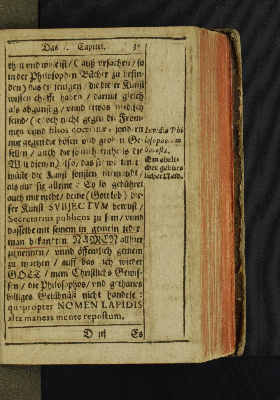 Das . Capitel. 37
thun und umb ist / ( auß ursachen / so
in der Philosophen Bücher zu befin-
den ) das die jenigen / die die er Kunst
wissen schafft haben / damit gleich
als abgünstig / unnd etwas neidisch
seind / ( doch nicht gegen die From-
men unnd filios doctrinæ, sondern
nur gegen die bösen und groben Ge-
sellen / auch die so
Welt dienen ) also / das
die Kunst sonsten niemandt /
als nur sie alleine : Ey so gebühret
auch mir nicht / deine ( Gottlob ) die-
ser Kunst SVBJECTVM bewust /
Secretarius publicus zu sein / unnd
dasselbe mit seinem in gemein jeder-
man bekandten NAMEN allhier
zu nennen / unnd öffentlich gemein
zu machen / auff das ich wieder
GOTT / mein Christlichs Gewis-
sen / die Philosophos, und gethanes
billiges Gelübnüß nicht handele :
quapropter NOMEN LAPIDIS
alta maneat mente repostum.
D iij Es
Invidia Phi
losophorum
honesta.
Ein ehrli-
cher gebürt-
licher Neid.